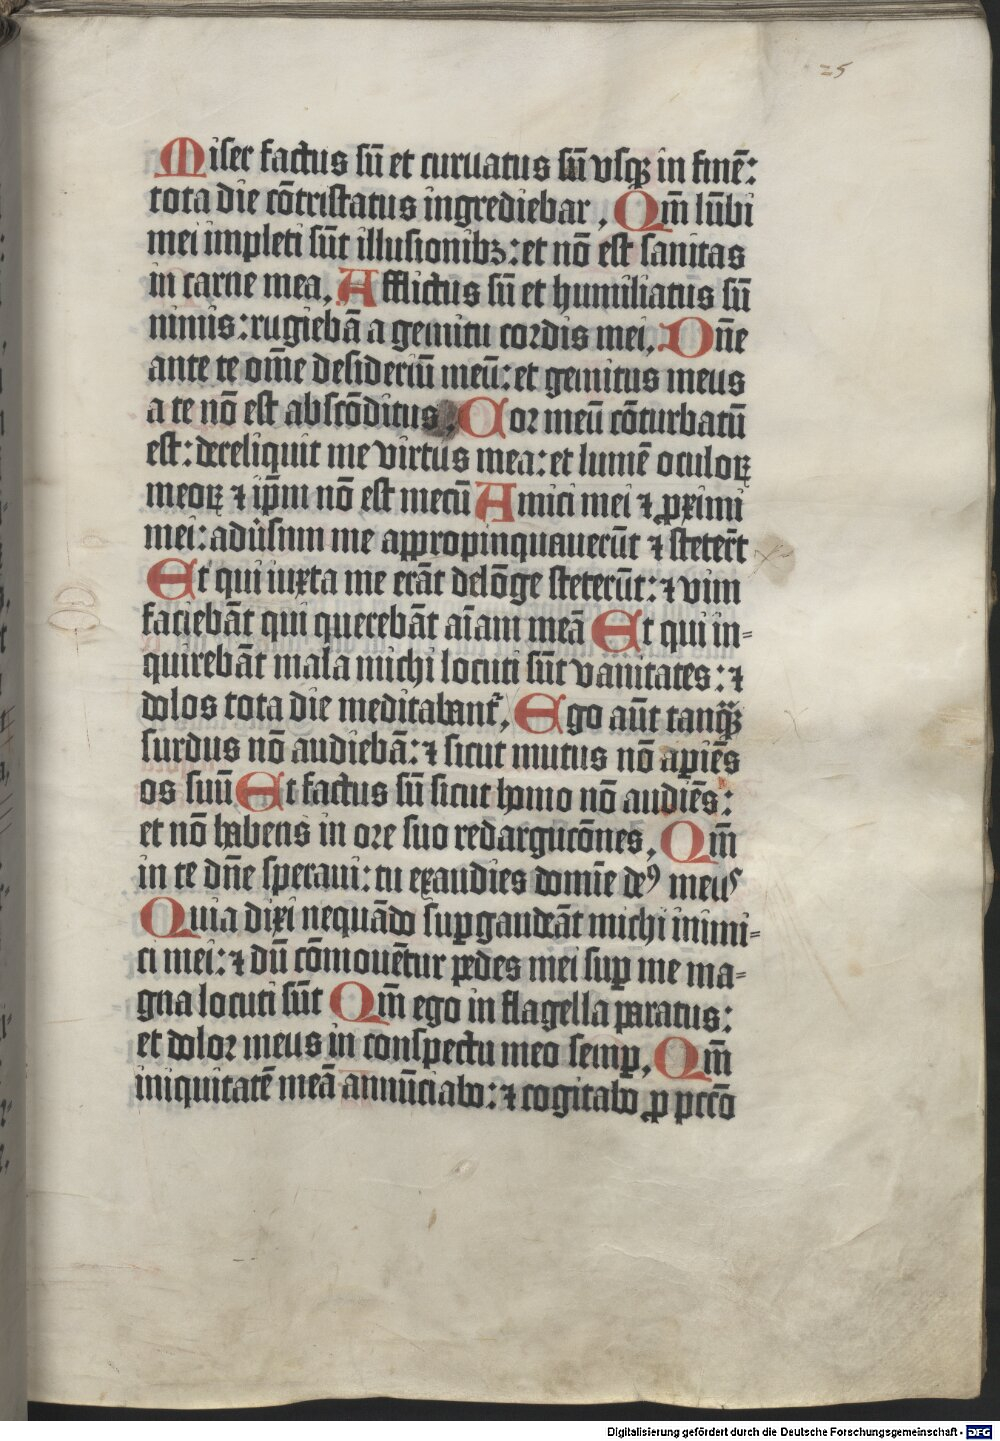 25
Miser factus sū et curuatus sū vsqꝫ in finē:
tota die cōtristatus ingrediebar. Qm̄ lūbi
mei impleti sūt illusionibꝫ: et nō est sanitas
in carne mea. Afflictus sū et humiliatus sū
nimis: rugiebā a gemitu cordis mei. Dn̄e
ante te om̄e desideriū meū: et gemitus meus
a te nō est abscōditus. Cor meū cōturbatū
est: dereliquit me virtus mea: et lumē oculoꝝ
meoꝝ ⁊ ip̄m nō est mecū Amici mei ⁊ ꝓximi
mei: adūsum me appropinquauerūt ⁊ stetert̄
Et qui iuxta me erāt delōge steterūt: ⁊ vim
faciebāt qui querebāt aīam meā Et qui in-
quirebāt mala michi locuti sūt vanitates: ⁊
dolos tota die meditabant᷑. Ego aūt tanqꝫ̄
surdus nō audiebā: ⁊ sicut mutus nō aꝑiēs
os suū Et factus sū sicut homo nō audiēs:
et nō habens in ore suo redargutōnes. Qm̄
in te dn̄e speraui: tu exaudies domīe deꝰ meus
Quia dixi nequādo suꝑgaudeāt michi inimi-
ci mei: ⁊ dū cōmouētur pedes mei suꝑ me ma-
gna locuti sūt Qm̄ ego in flagella paratus:
et dolor meus in conspectu meo semꝑ. Qm̄
iniquitatē meā annūciabo: ⁊ cogitabo ꝓ pctō
Digitalisierung gefördert durch die Deutsche Forschungsgemeinschaft - DFG